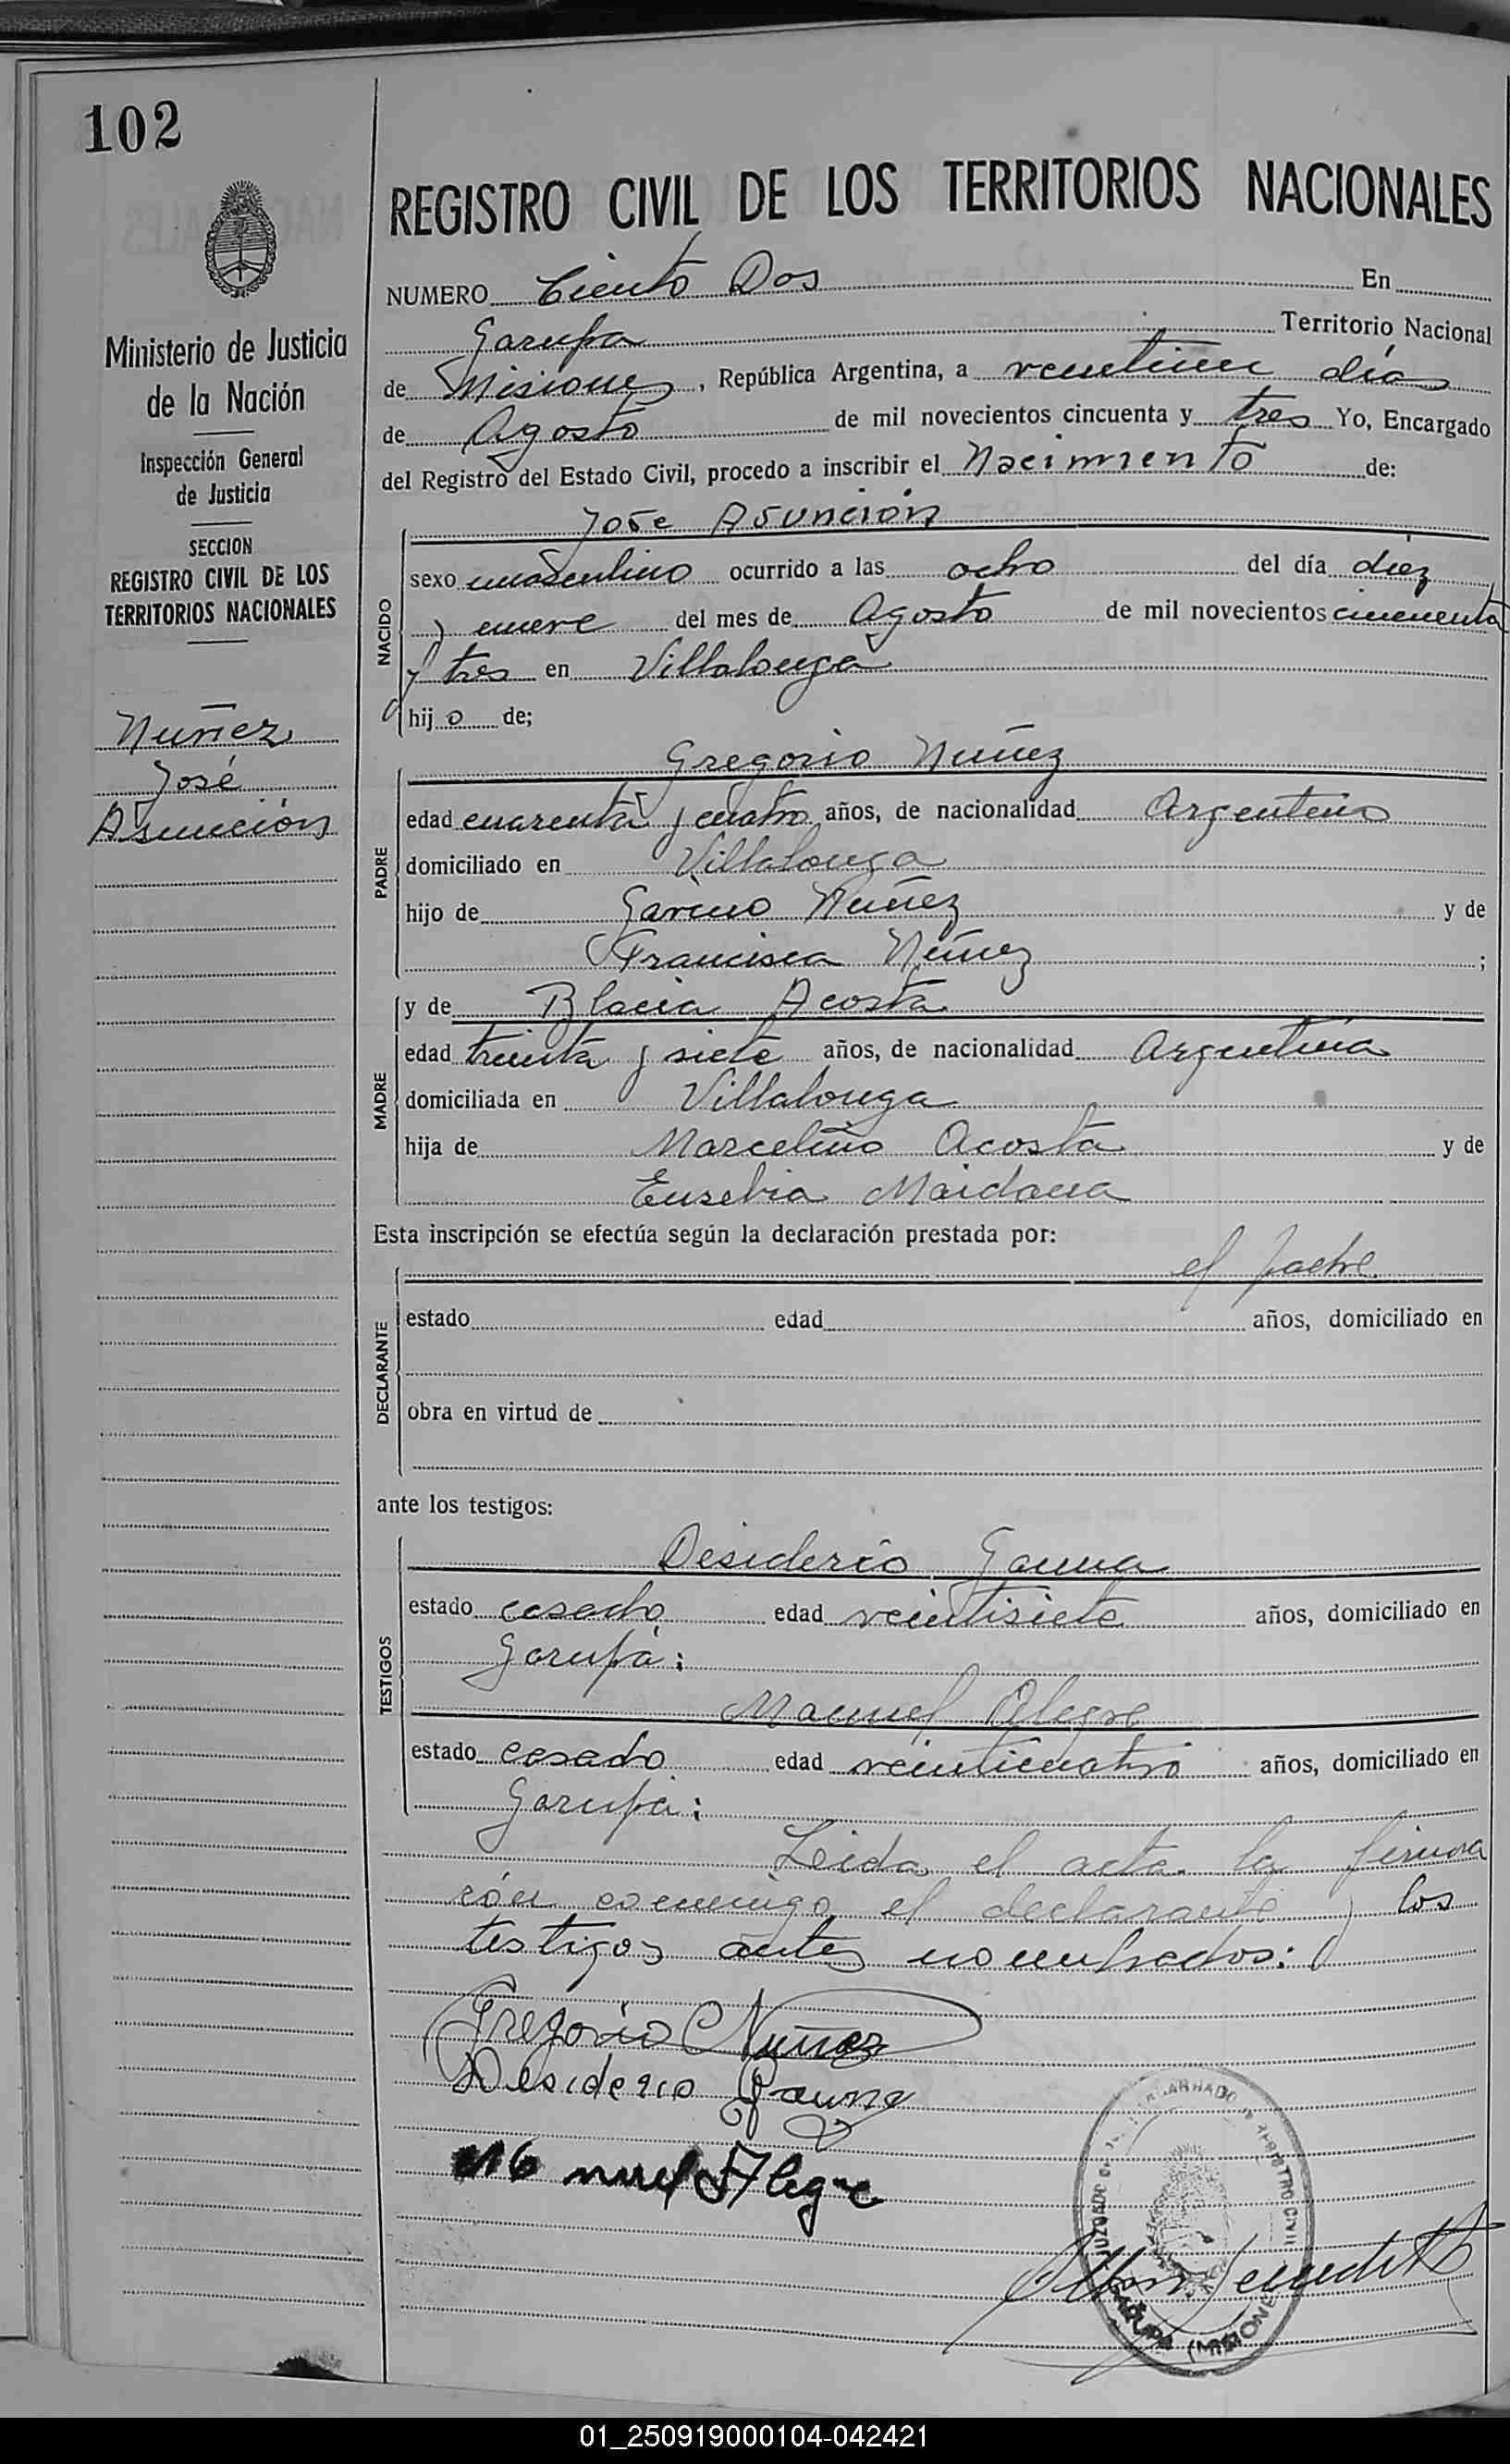 102
REGISTRO CIVIL DE LOS TERRITORIOS NACIONALES
Ministerio de Justicia
de la Nación
Inspección General
de Justicia
SECCION
REGISTRO CIVIL DE LOS
TERRITORIOS NACIONALES
Nuñez
José
Asunción
NUMERO Ciento Dos En
Garupa Territorio Nacional
de Misiones, República Argentina, a días
de Agosto de mil novecientos cincuenta y tres Yo, Encargado
del Registro del Estado Civil, procedo a inscribir el Nacimiento de:
NACIDO
Jose Asunción
sexo masculino ocurrido a las ocho del día diez
y nueve del mes de Agosto de mil novecientos cincuenta
y tres en Villalonga
hijo de;
PADRE
Gregorio Nuñez
edad cuarenta y cuatro años, de nacionalidad Argentino
domiciliado en Villalonga
hijo de Nuñez y de
Francisca Nuñez;
MADRE
y de Blacia Acosta
edad treinta y siete años, de nacionalidad Argentina
domiciliada en Villalonga
hija de Marcelino Acosta y de
Eusebia Maidana
Esta inscripción se efectúa según la declaración prestada por:
DECLARANTE
el padre
estado edad años, domiciliado en
obra en virtud de
ante los testigos:
TESTIGOS
Desiderio Gauna
estado casado edad veintisiete años, domiciliado en
Garupá:
Manuel Alegre
estado casado edad veinticuatro años, domiciliado en
Garupá:
Leida el acta la firma
rón conmigo el declarante y los
testigos antes nombrados:
Gregorio Nuñez
Desiderio Gauna
Alegre
JUZGADO DE REGISTRO CIVIL
GARUPA (MISIONES)
01_250919000104-042421